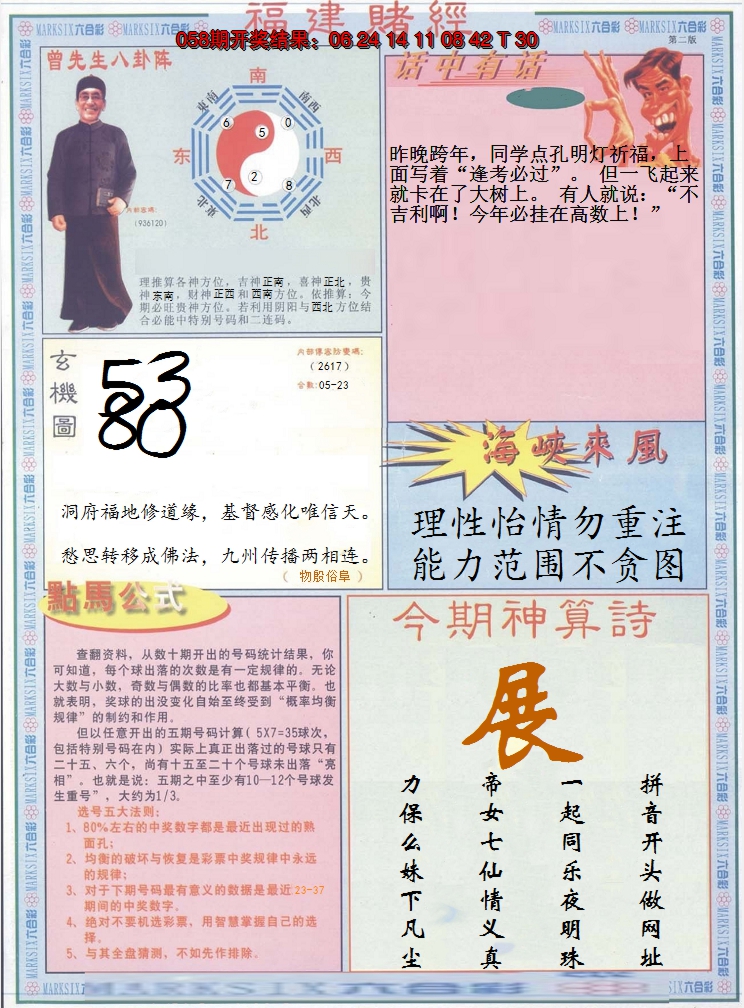 福建賭經
058期开奖结果：06 24 14 11 08 42 T 30
第二版
MARKSIX六合彩
曾先生八卦阵
南
東南
南西
东
西
東北
北西
北
6
5
0
7
2
8
内部密碼：
（936120）
理推算各神方位，吉神正南，喜神正北，贵
神东南，财神正西和西南方位。依推算：今
期必旺贵神方位。若利用阴阳与西北方位结
合必能中特别号码和二连码。
话中有话
昨晚跨年，同学点孔明灯祈福，上
面写着“逢考必过”。 但一飞起来
就卡在了大树上。 有人就说：“不
吉利啊！今年必挂在高数上！”
玄機圖
53
80
内部傳密防密碼：
（2617）
合數:05-23
洞府福地修道缘，基督感化唯信天。
愁思转移成佛法，九州传播两相连。
（ 物殷俗阜 ）
海峽來風
理性怡情勿重注
能力范围不贪图
點馬公式
查翻资料，从数十期开出的号码统计结果，你
可知道，每个球出落的次数是有一定规律的。无论
大数与小数，奇数与偶数的比率也都基本平衡。也
就表明，奖球的出没变化自始至终受到“概率均衡
规律”的制约和作用。
但以任意开出的五期号码计算( 5X7=35球次，
包括特别号码在内) 实际上真正出落过的号球只有
二十五、六个，尚有十五至二十个号球未出落“亮
相”。也就是说：五期之中至少有10—12个号球发
生重号”，大约为1/3。
选号五大法则:
1、80%左右的中奖数字都是最近出现过的熟
面孔;
2、均衡的破坏与恢复是彩票中奖规律中永远
的规律;
3、对于下期号码最有意义的数据是最近23-37
期间的中奖数字。
4、绝对不要机选彩票，用智慧掌握自己的选
择。
5、与其全盘猜测，不如先作排除。
今期神算詩
展
拼音开头做网址
一起同乐夜明珠
帝女七仙情义真
力保么妹下凡尘